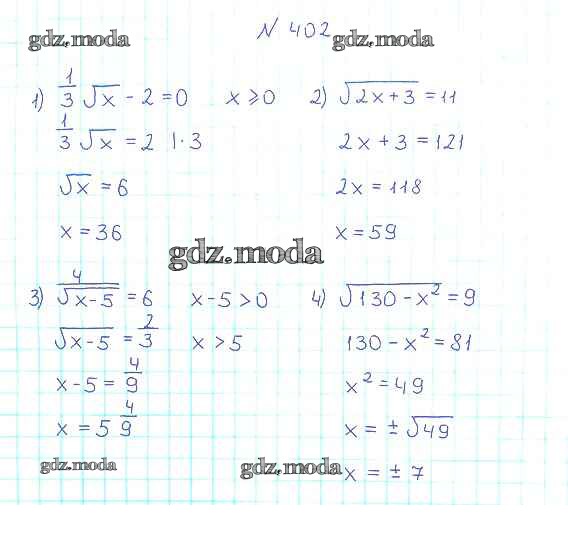 gdz.moda
N 402
gdz.moda
1) 1/3 √x - 2 = 0    x ⩾ 0
1/3 √x = 2 | · 3
√x = 6
x = 36
2) √(2x + 3) = 11
2x + 3 = 121
2x = 118
x = 59
gdz.moda
3) 4/√(x - 5) = 6    x - 5 > 0
√(x - 5) = 2/3    x > 5
x - 5 = 4/9
x = 5 4/9
4) √(130 - x²) = 9
130 - x² = 81
x² = 49
x = ± √49
x = ± 7
gdz.moda
gdz.moda